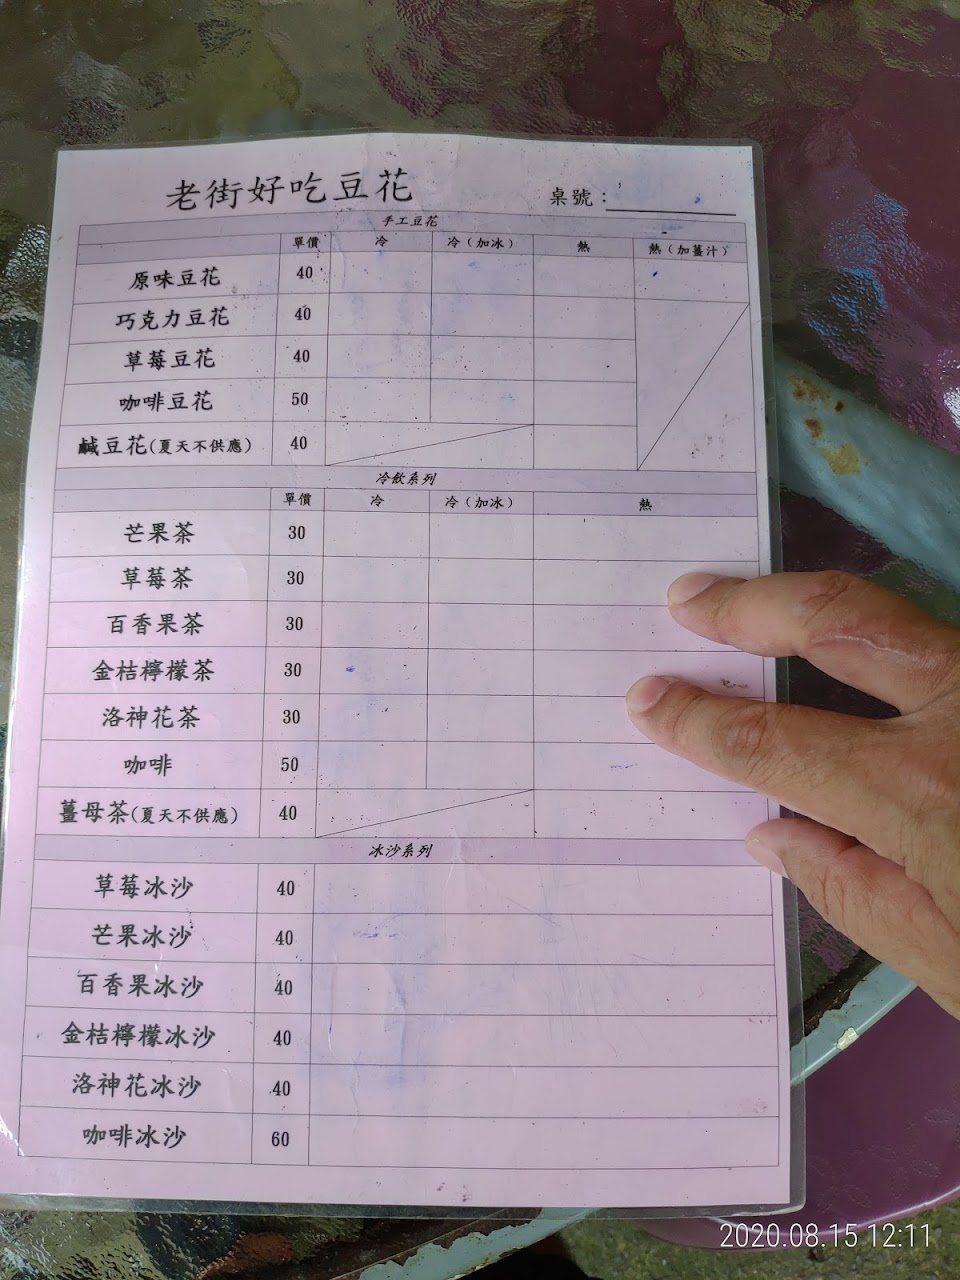 老街好吃豆花 桌號：
手工豆花
單價 冷 冷（加冰） 熱 熱（加薑汁）
原味豆花 40
巧克力豆花 40
草莓豆花 40
咖啡豆花 50
鹹豆花(夏天不供應) 40
冷飲系列
單價 冷 冷（加冰） 熱
芒果茶 30
草莓茶 30
百香果茶 30
金桔檸檬茶 30
洛神花茶 30
咖啡 50
薑母茶(夏天不供應) 40
冰沙系列
草莓冰沙 40
芒果冰沙 40
百香果冰沙 40
金桔檸檬冰沙 40
洛神花冰沙 40
咖啡冰沙 60
2020.08.15 12:11